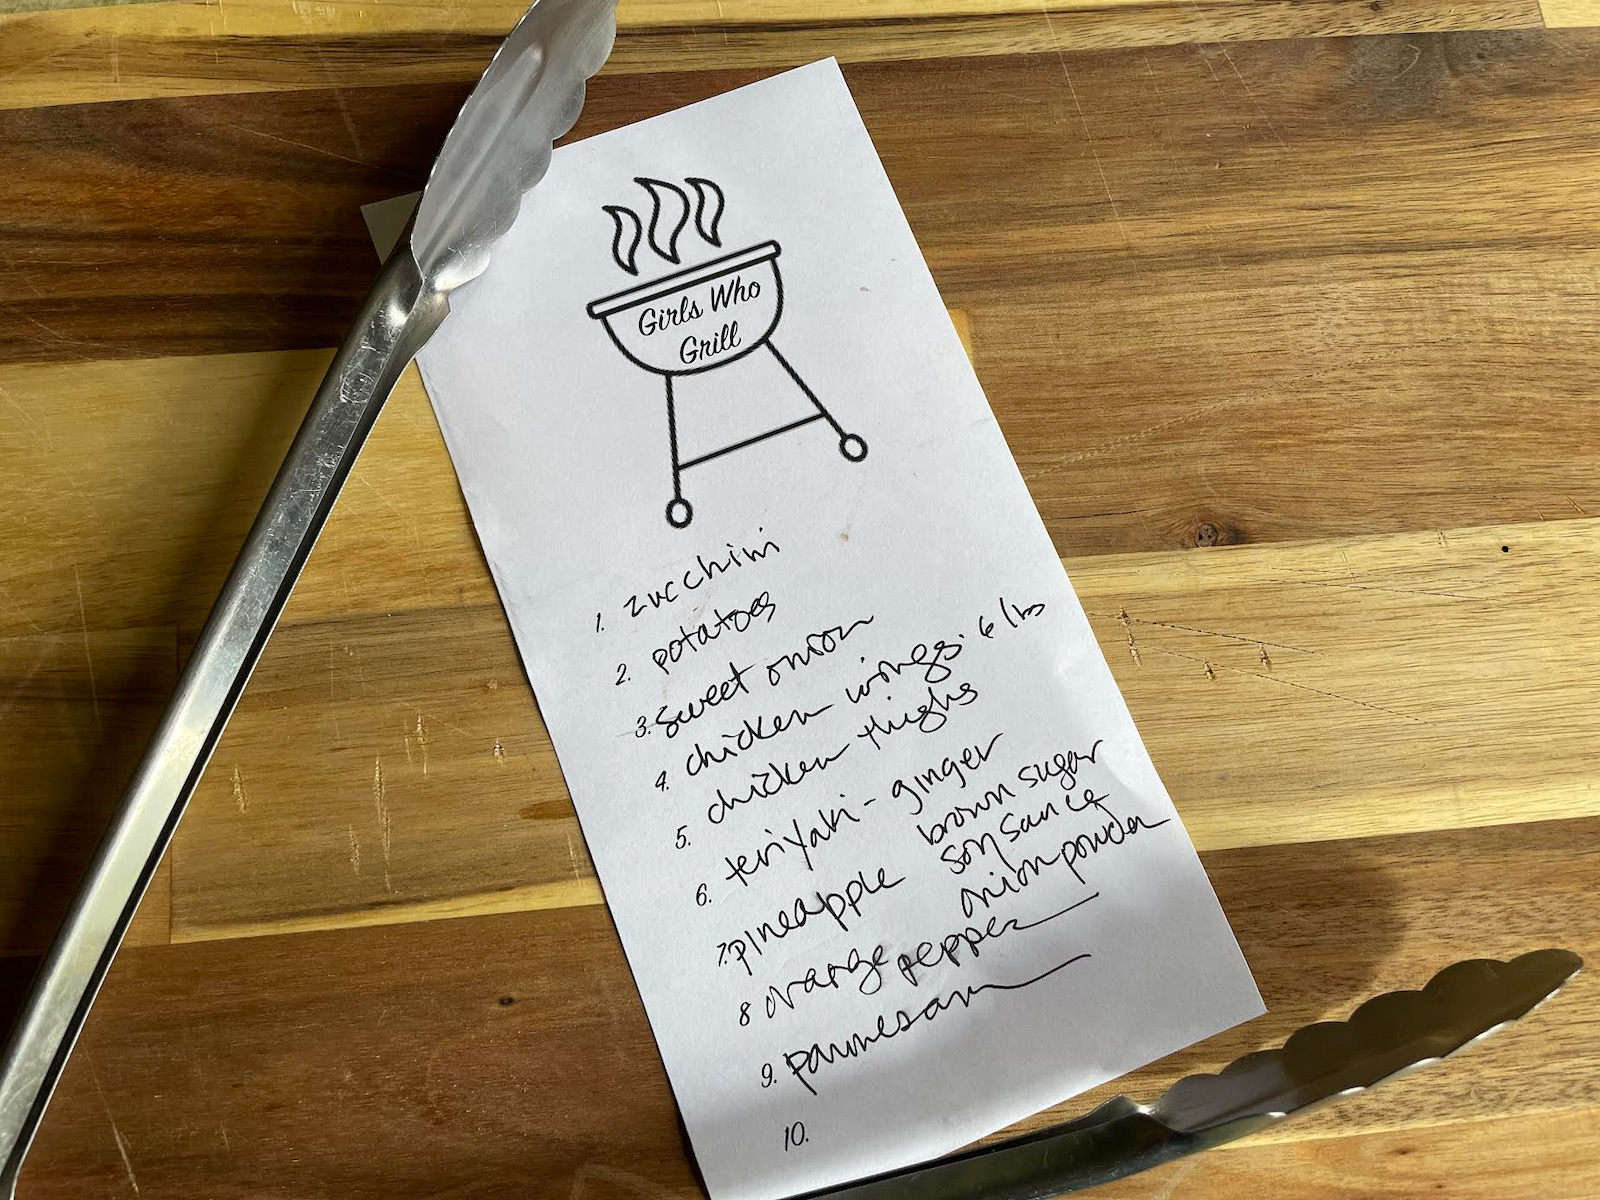 Girls Who
Grill
1. zucchini
2. potatoes
3. sweet onion
4. chicken wings. 6 lbs
5. chicken thighs
6. teriyaki - ginger
brown sugar
soy sauce
onion powder
7. pineapple
8 orange pepper
9. parmesan
10.